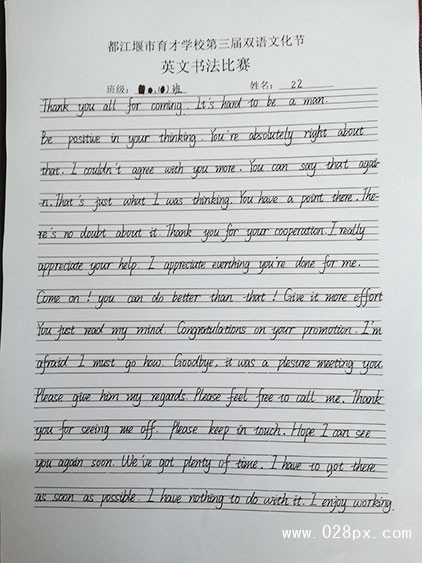 都江堰市育才学校第三届双语文化节
英文书法比赛
班级: 班 姓名: 22
Thank you all for coming. It's hard to be a man.
Be positive in your thinking. You're absolutely right about
that. I couldn't agree with you more. You can say that agai-
n. That's just what I was thinking. You have a point there. The-
re's no doubt about it. Thank you for your cooperation. I really
appreciate your help. I appreciate everthing you're done for me.
Come on! you can do better than that! Give it more effort
You just read my mind. Congratulations on your promotion. I'm
afraid I must go now. Goodbye, it was a plesure meeting you.
Please give him my regards. Please feel free to call me. Thank
you for seeing me off. Please keep in touch. Hope I can see
you again soon. We've got plenty of time. I have to got there
as soon as possible. I have nothing to do with it. I enjoy working.
www.028px.com